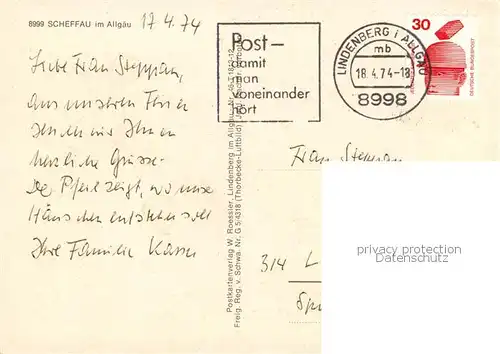 8999 SCHEFFAU im Allgäu
17.4.74
Liebe Frau Steppan,
aus unseren Ferien
senden wir Ihnen
herzliche Grüsse.
Der Pfeil zeigt, wo unser
Häuschen entstehen soll
Ihre Familie
Postkartenverlag W. Roessler, Lindenberg im Allgäu
Freig. Reg. v. Schwa. Nr. G 5/4318 (Thorbecke-Luftbild)
Post—
damit
man
voneinander
hört
LINDENBERG i ALLGÄU
mb
18.4.74-18
8998
30
DEUTSCHE BUNDESPOST
Frau Steppan
314 L
privacy protection
Datenschutz